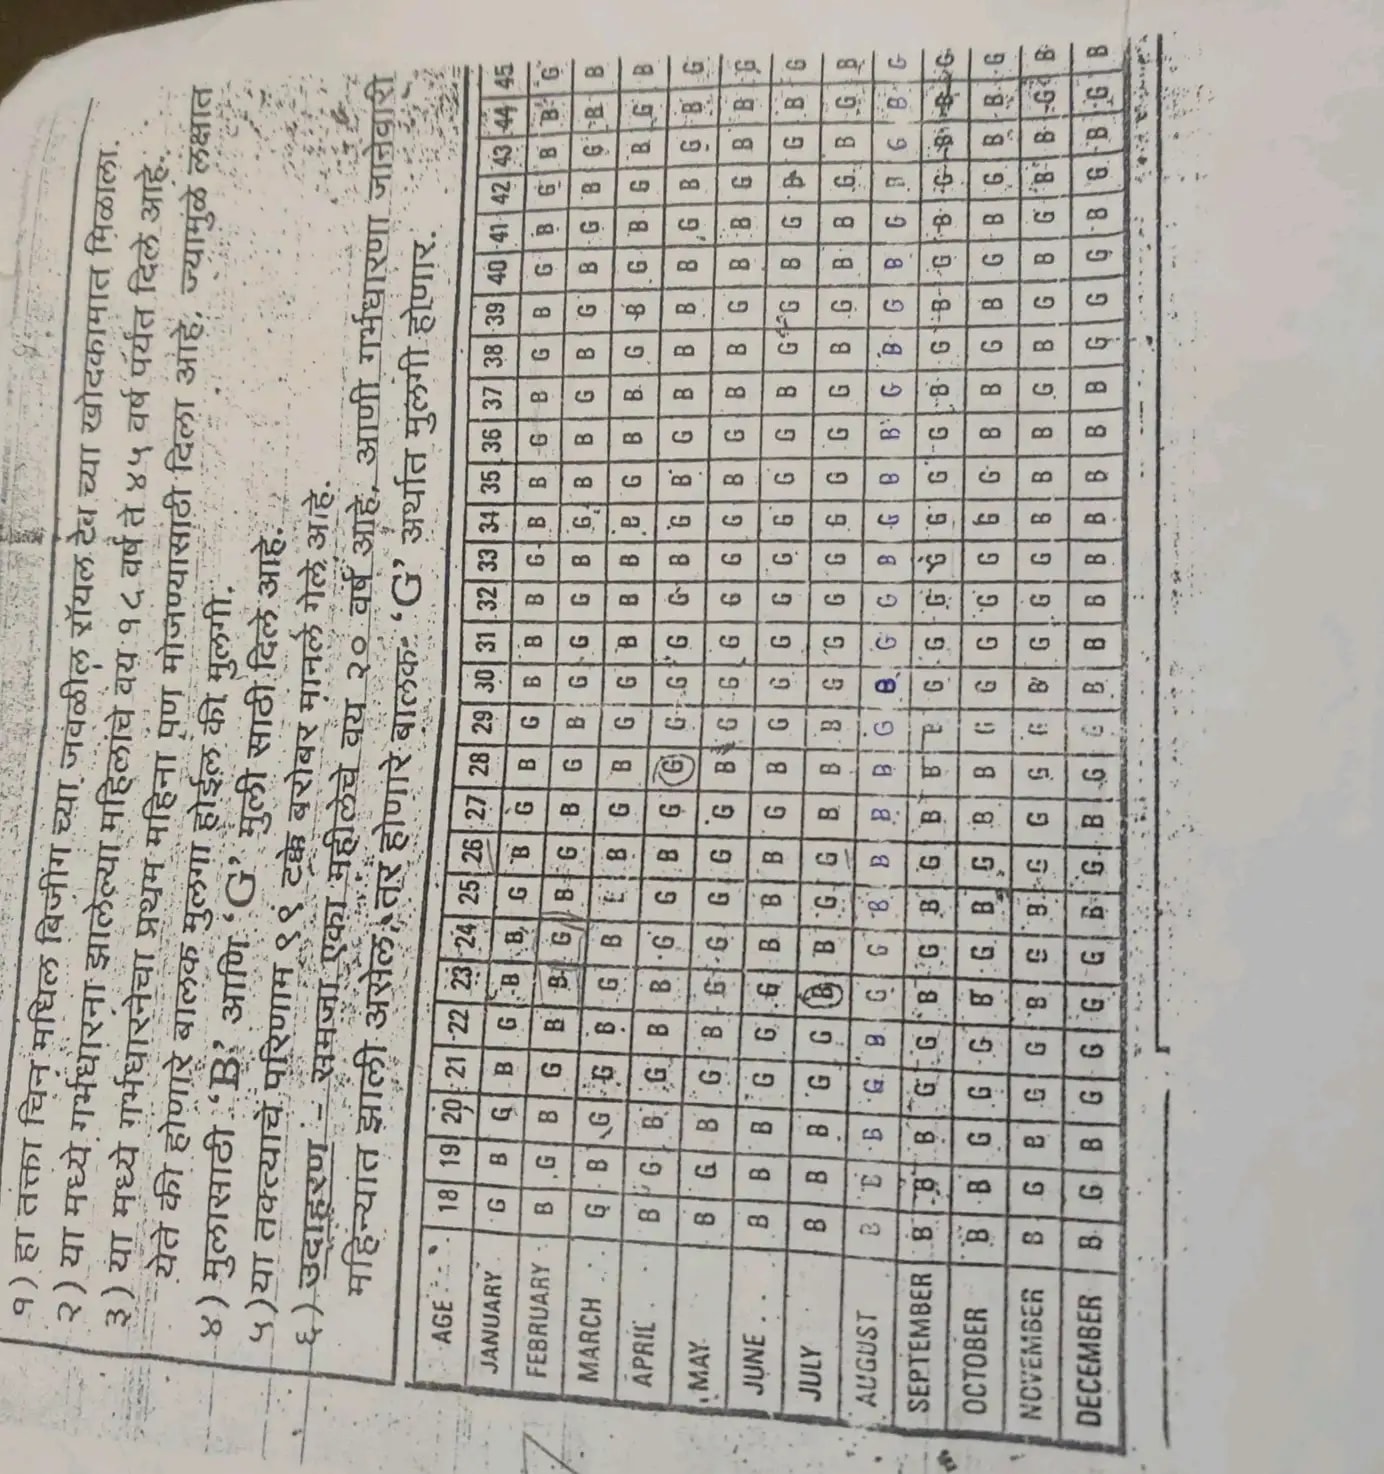 १) हा तक्ता चिन मधिल बिजींग च्या जवळील रॉयल टेंब च्या खोदकामात मिळाला.
२) या मध्ये गर्भधारना झालेल्या महिलांचे वय १८ वर्ष ते ४५ वर्ष पर्यंत दिले आहे.
३) या मध्ये गर्भधारनेचा प्रथम महिना पुण मोजण्यासाठी दिला आहे. ज्यामुळे लक्षात
येते की होणारे बालक मुलगा होईल की मुलगी.
४) मुलासाठी 'B' आणि 'G' मुली साठी दिले आहे.
५) या तक्त्याचे परिणाम ९९ टक्के बरोबर मानले गेले आहे.
६) उदाहरण - समजा एका महीलेचे वय २० वर्ष आहे, आणी गर्भधारणा जानेवारी
महिन्यात झाली असेल, तर होणारे बालक 'G' अर्थात मुलगी होणार.
AGE 18 19 20 21 22 23 24 25 26 27 28 29 30 31 32 33 34 35 36 37 38 39 40 41 42 43 44 45
JANUARY G B G B G B B G B G B G B B B G B B G B G B G B G B B G
FEBRUARY B G B G B B G B G B G B G G G B G B B G B G B G B G B B
MARCH G B G G B G B B G B G G B B B B G B B G B G B G B G B
APRIL B G B G B B G G B G G G G G G B G B G B B B B G B G B G
MAY B G B G B G G G G G B G G G G G G B G B B G B B G B B G
JUNE B B B G G G B B B G B G G G G G G G G B G G B G B G B G
JULY B B B G G B B G G B B B G G G G G G G G B G B B G B G B
AUGUST B B G B G G B B B B G B G G B G B B G B G B G B G B G
SEPTEMBER B B B G G B G B G B B B G G G G G G G B G B G B G B B G
OCTOBER B B G G G B G B G B B G G G G G G G B B G B G B G B B G
NOVEMBER B G B G G B G B G G G G B G G G B B B G B G B G B B G B
DECEMBER B G B G G G G B G B G G B B B B B B B B G G G B G B G B